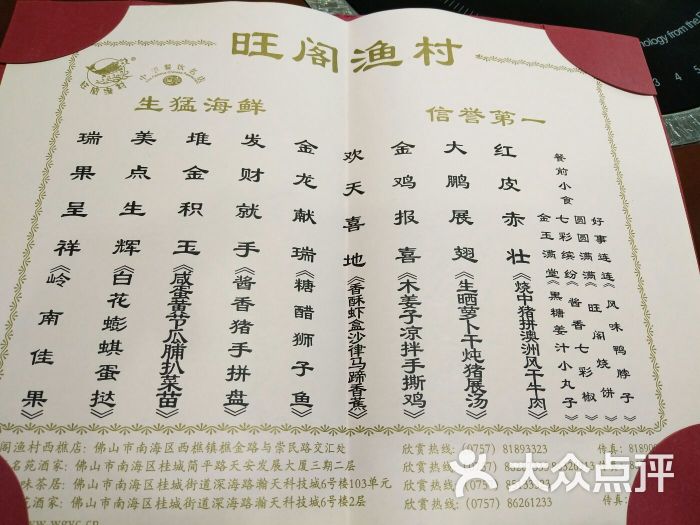 旺阁渔村
生猛海鲜
信誉第一
餐前小食
好事连连《风味鸭脖子》
圆圆满满《旺阁烧饼》
七彩缤纷《酱香七彩椒》
金玉满堂《黑糖姜汁小丸子》
红皮赤壮《烧中猪拼澳洲风干牛肉》
大鹏展翅《生晒萝卜干炖猪展汤》
金鸡报喜《木姜子凉拌手撕鸡》
欢天喜地《香酥虾盒沙律马蹄香蕉》
金龙献瑞《糖醋狮子鱼》
发财就手《酱香猪手拼盘》
堆金积玉《咸蛋黄节瓜脯扒菜苗》
美点生辉《白花蟛蜞蛋挞》
瑞果呈祥《岭南佳果》
阁渔村西樵店：佛山市南海区西樵镇樵金路与崇民路交汇处 欣赏热线：(0757) 81893323 传真：
名苑酒家：佛山市南海区桂城简平路天安发展大厦三期二层 欣赏热线：(0757)
味茶居：佛山市南海区桂城街道深海路瀚天科技城6号楼103单元 欣赏热线：(0757)
酒家：佛山市南海区桂城街道深海路瀚天科技城6号楼2层 欣赏热线：(0757) 86261233 传真：
nology from the
3 4 5
大众点评